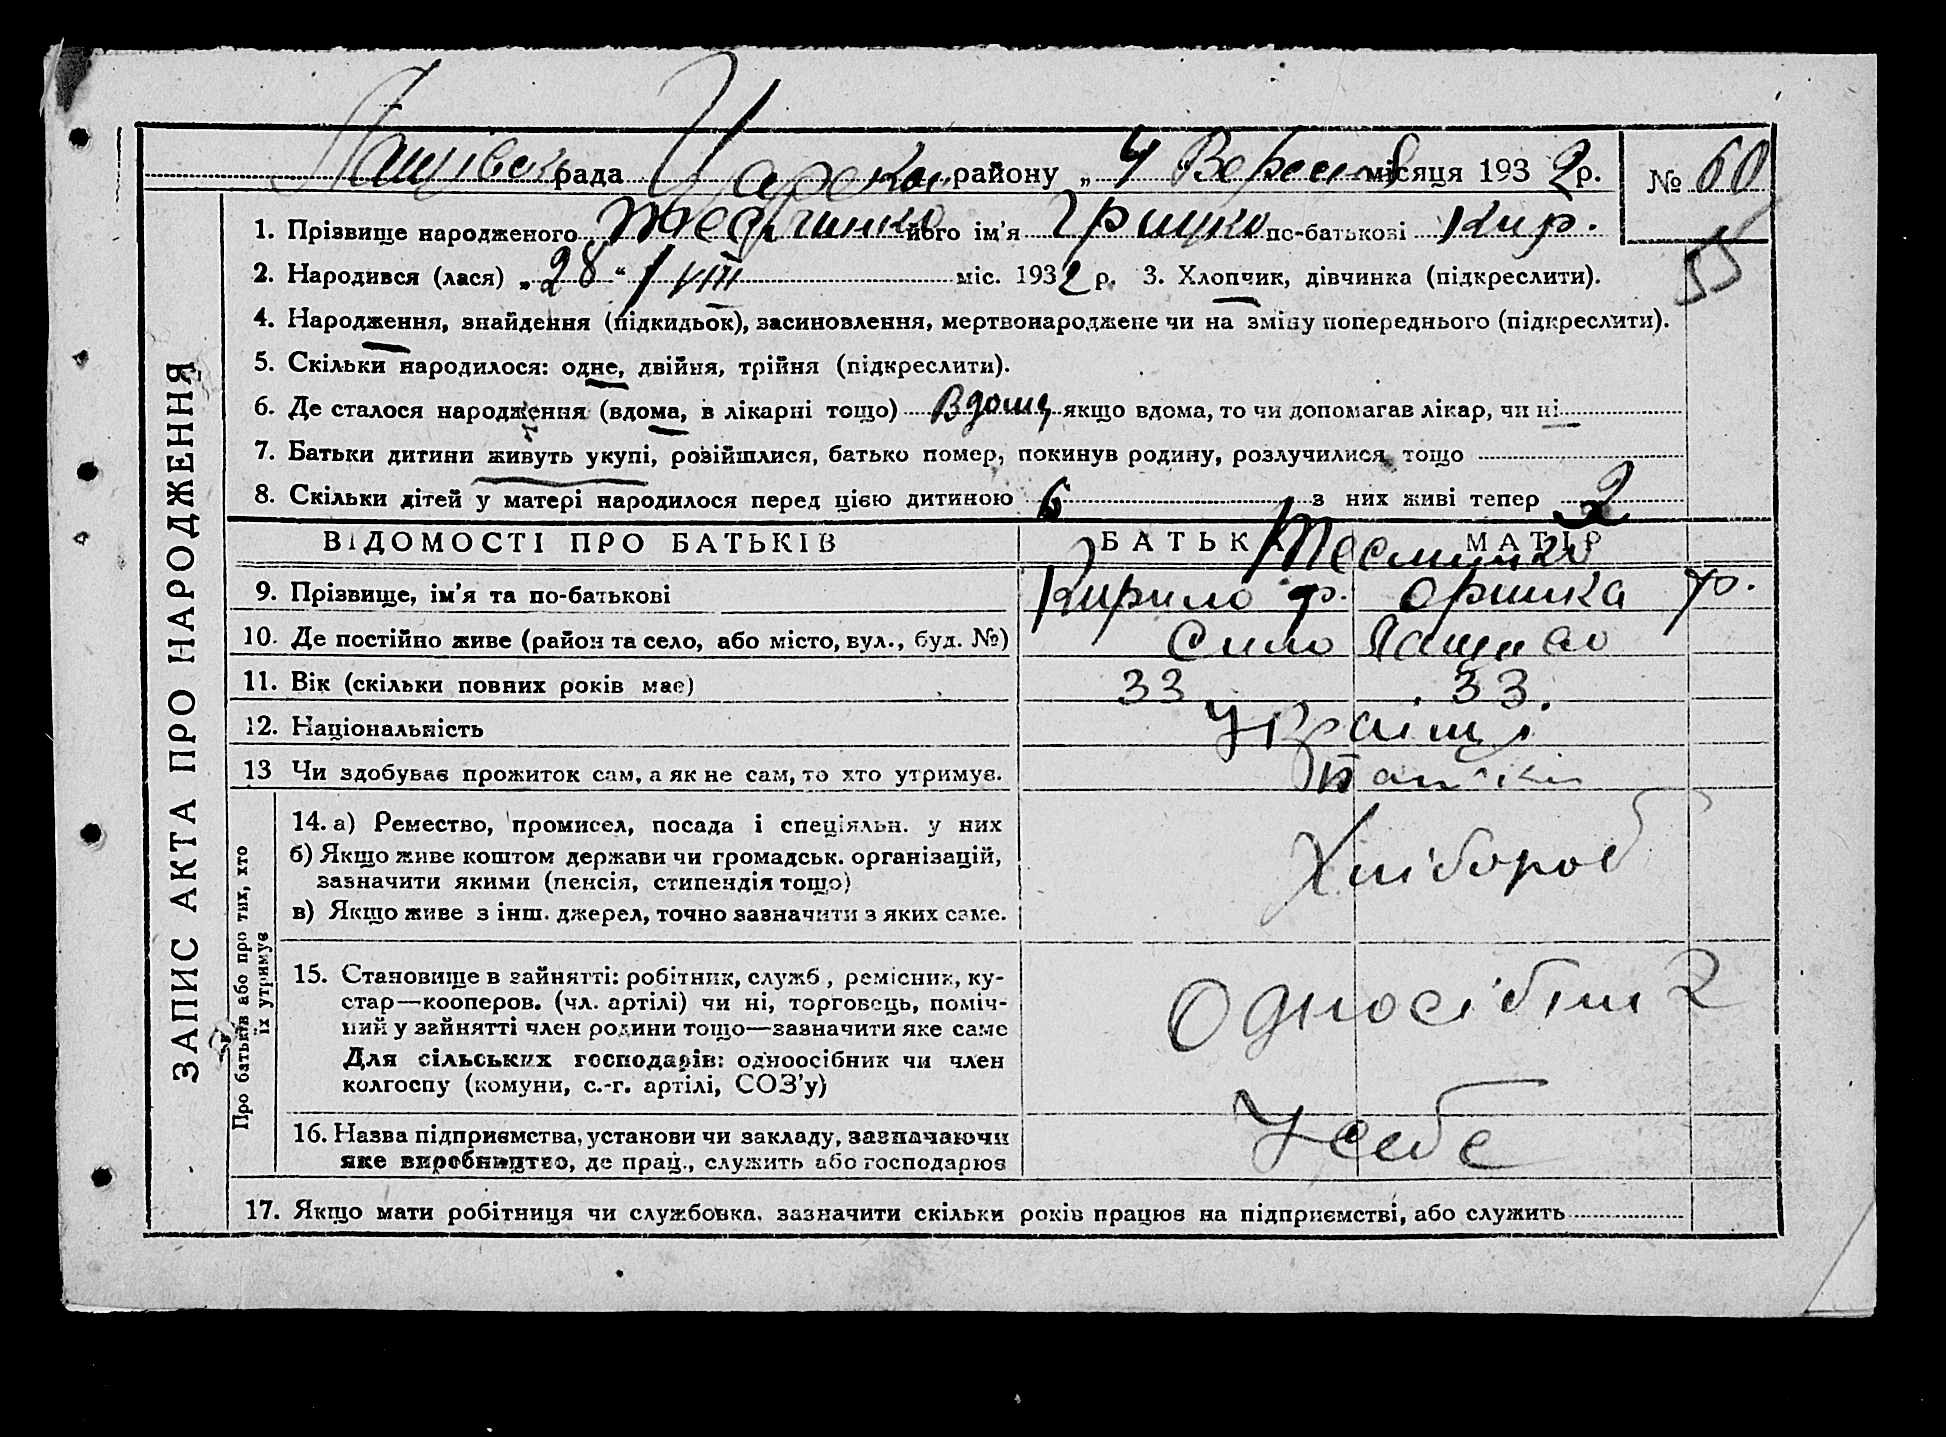 рада району „4" Вересня місяця 1932 р. № 60
1. Прізвище народженого його ім'я Гришко по-батькові Кир.
2. Народився (лася) „28" VIII міс. 1932 р. 3. Хлопчик, дівчинка (підкреслити).
4. Народження, знайдення (підкидьок), засиновлення, мертвонароджене чи на зміну попереднього (підкреслити).
5. Скільки народилося: одне, двійня, трійня (підкреслити).
6. Де сталося народження (вдома, в лікарні тощо) Вдома якщо вдома, то чи допомагав лікар, чи ні
7. Батьки дитини живуть укупі, розійшлися, батько помер, покинув родину, розлучилися тощо
8. Скільки дітей у матері народилося перед цією дитиною 6 з них живі тепер 2
ЗАПИС АКТА ПРО НАРОДЖЕННЯ
ВІДОМОСТІ ПРО БАТЬКІВ БАТЬКА МАТІР
9. Прізвище, ім'я та по-батькові Кирило Ф. Оришка Ф.
10. Де постійно живе (район та село, або місто, вул., буд. №) Село
11. Вік (скільки повних років має) 33 33.
12. Національність Україці
13 Чи здобуває прожиток сам, а як не сам, то хто утримує.
Про батьків або про тих, хто
їх утримує
14. а) Ремество, промисел, посада і спеціяльн. у них
б) Якщо живе коштом держави чи громадськ. організацій,
зазначити якими (пенсія, стипендія тощо)
в) Якщо живе з інш. джерел, точно зазначити з яких саме.
Хлібороб
15. Становище в зайнятті: робітник, служб., ремісник, ку-
стар—кооперов. (чл. артілі) чи ні, торговець, поміч-
ний у зайнятті член родини тощо—зазначити яке саме
Для сільських господарів: одноосібник чи член
колгоспу (комуни, с.-г. артілі, СОЗ'у)
16. Назва підприємства, установи чи закладу, зазначаючи
яке виробництво, де прац., служить або господарює
У себе
17. Якщо мати робітниця чи службовка, зазначити скільки років працює на підприємстві, або служить